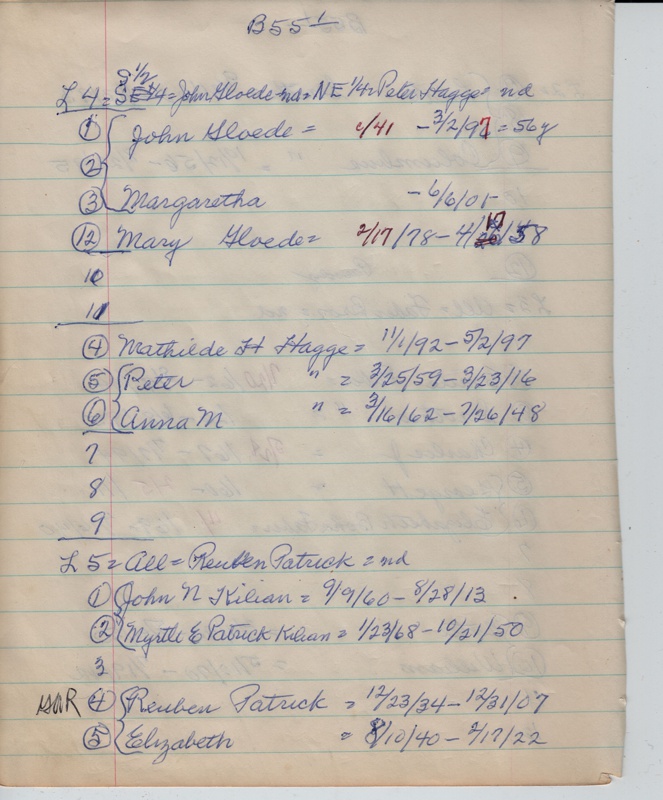 B55 1
S 1/2
L 4 = SE 1/4 = John Gloede = nd = NE 1/4 = Peter Hagge = nd
① John Gloede = /41 - 3/2/97 = 56y
②
③ Margaretha - 6/6/01
⑫ Mary Gloede = 2/17/78 - 4/17/58
10
11
④ Mathilde H Hagge = 11/1/92 - 5/2/97
⑤ Peter " = 3/25/59 - 3/23/16
⑥ Anna M " = 3/16/62 - 7/26/48
7
8
9
L 5 = All = Reuben Patrick = nd
① John N Kilian = 9/9/60 - 8/28/13
② Myrtle E Patrick Kilian = 1/23/68 - 10/21/50
3
GAR ④ Reuben Patrick = 12/23/34 - 12/31/07
⑤ Elizabeth = 8/10/40 - 2/17/22